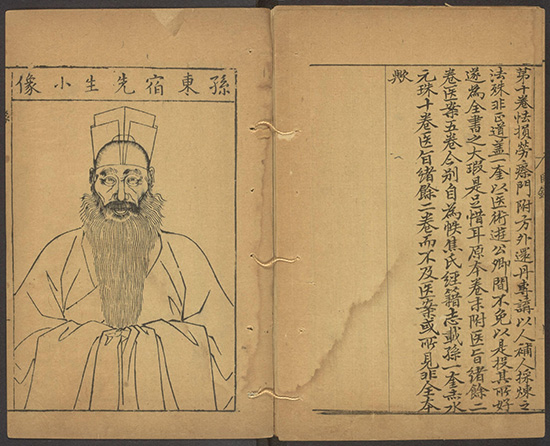 第十卷怯損勞瘵門附方外還丹專講以人補人採煉之
法殊非正道蓋一奎以医術遊公卿間不免以是投其所好
遂為全書之大瑕是足惜耳原本卷末附医旨緒餘二
卷医案五卷今別自為帙焦氏經籍志載孫一奎赤水
元珠十卷医旨緒餘二卷而不及医案或所見非全本
歟
孫東宿先生小像